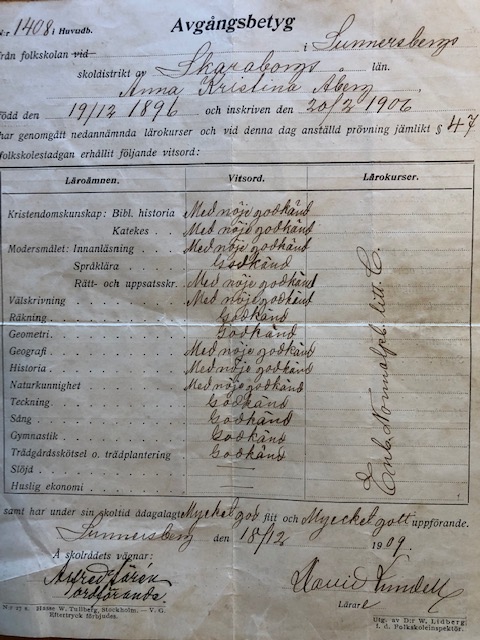 N:r 1408 i Huvudb.
Avgångsbetyg
från folkskolan vid i Sunnersbergs
skoldistrikt av Skaraborgs län.
Anna Kristina Åberg,
född den 19/12 1896 och inskriven den 20/2 1906
har genomgått nedannämnda lärokurser och vid denna dag anställd prövning jämlikt § 47
folkskolestadgan erhållit följande vitsord:
Läroämnen. Vitsord. Lärokurser.
Kristendomskunskap: Bibl. historia Med nöje godkänd
Katekes . . Med nöje godkänd
Modersmålet: Innanläsning . . . . Med nöje godkänd
Språklära . . . . Godkänd
Rätt- och uppsatsskr. Med nöje godkänd
Välskrivning . . . . Med nöje godkänd
Räkning . . . . Godkänd
Geometri . . . . Godkänd
Geografi . . . . Med nöje godkänd
Historia . . . . Med nöje godkänd
Naturkunnighet . . . . Med nöje godkänd
Teckning . . . . Godkänd
Sång . . . . Godkänd
Gymnastik . . . . Godkänd
Trädgårdsskötsel o. trädplantering Godkänd
Slöjd . . . . —
Huslig ekonomi . . . . —
Enl. Normalpl. litt. C.
samt har under sin skoltid ådagalagt Mycket god flit och Mycket gott uppförande.
Sunnersberg den 18/12 1909.
Å skolrådets vägnar:
Alfred
ordförande David Lundell
Lärare
N:o 27 8. Hasse W. Tullberg, Stockholm. — V. G.
Eftertryck förbjudes.
Utg. av D:r W. Lidberg
f. d. Folkskoleinspektör.